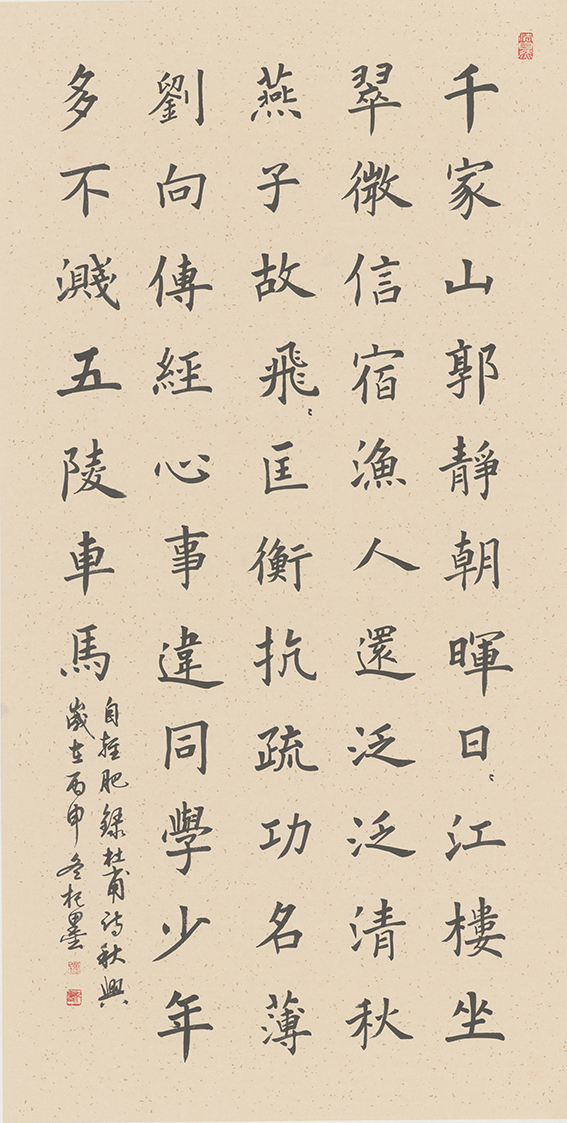 千家山郭靜朝暉日〻江樓坐
翠微信宿漁人還泛泛清秋
燕子故飛〻匡衡抗疏功名薄
劉向傳經心事違同學少年
多不濺五陵車馬
自輕肥錄杜甫詩秋興
歲在丙申冬杞墨